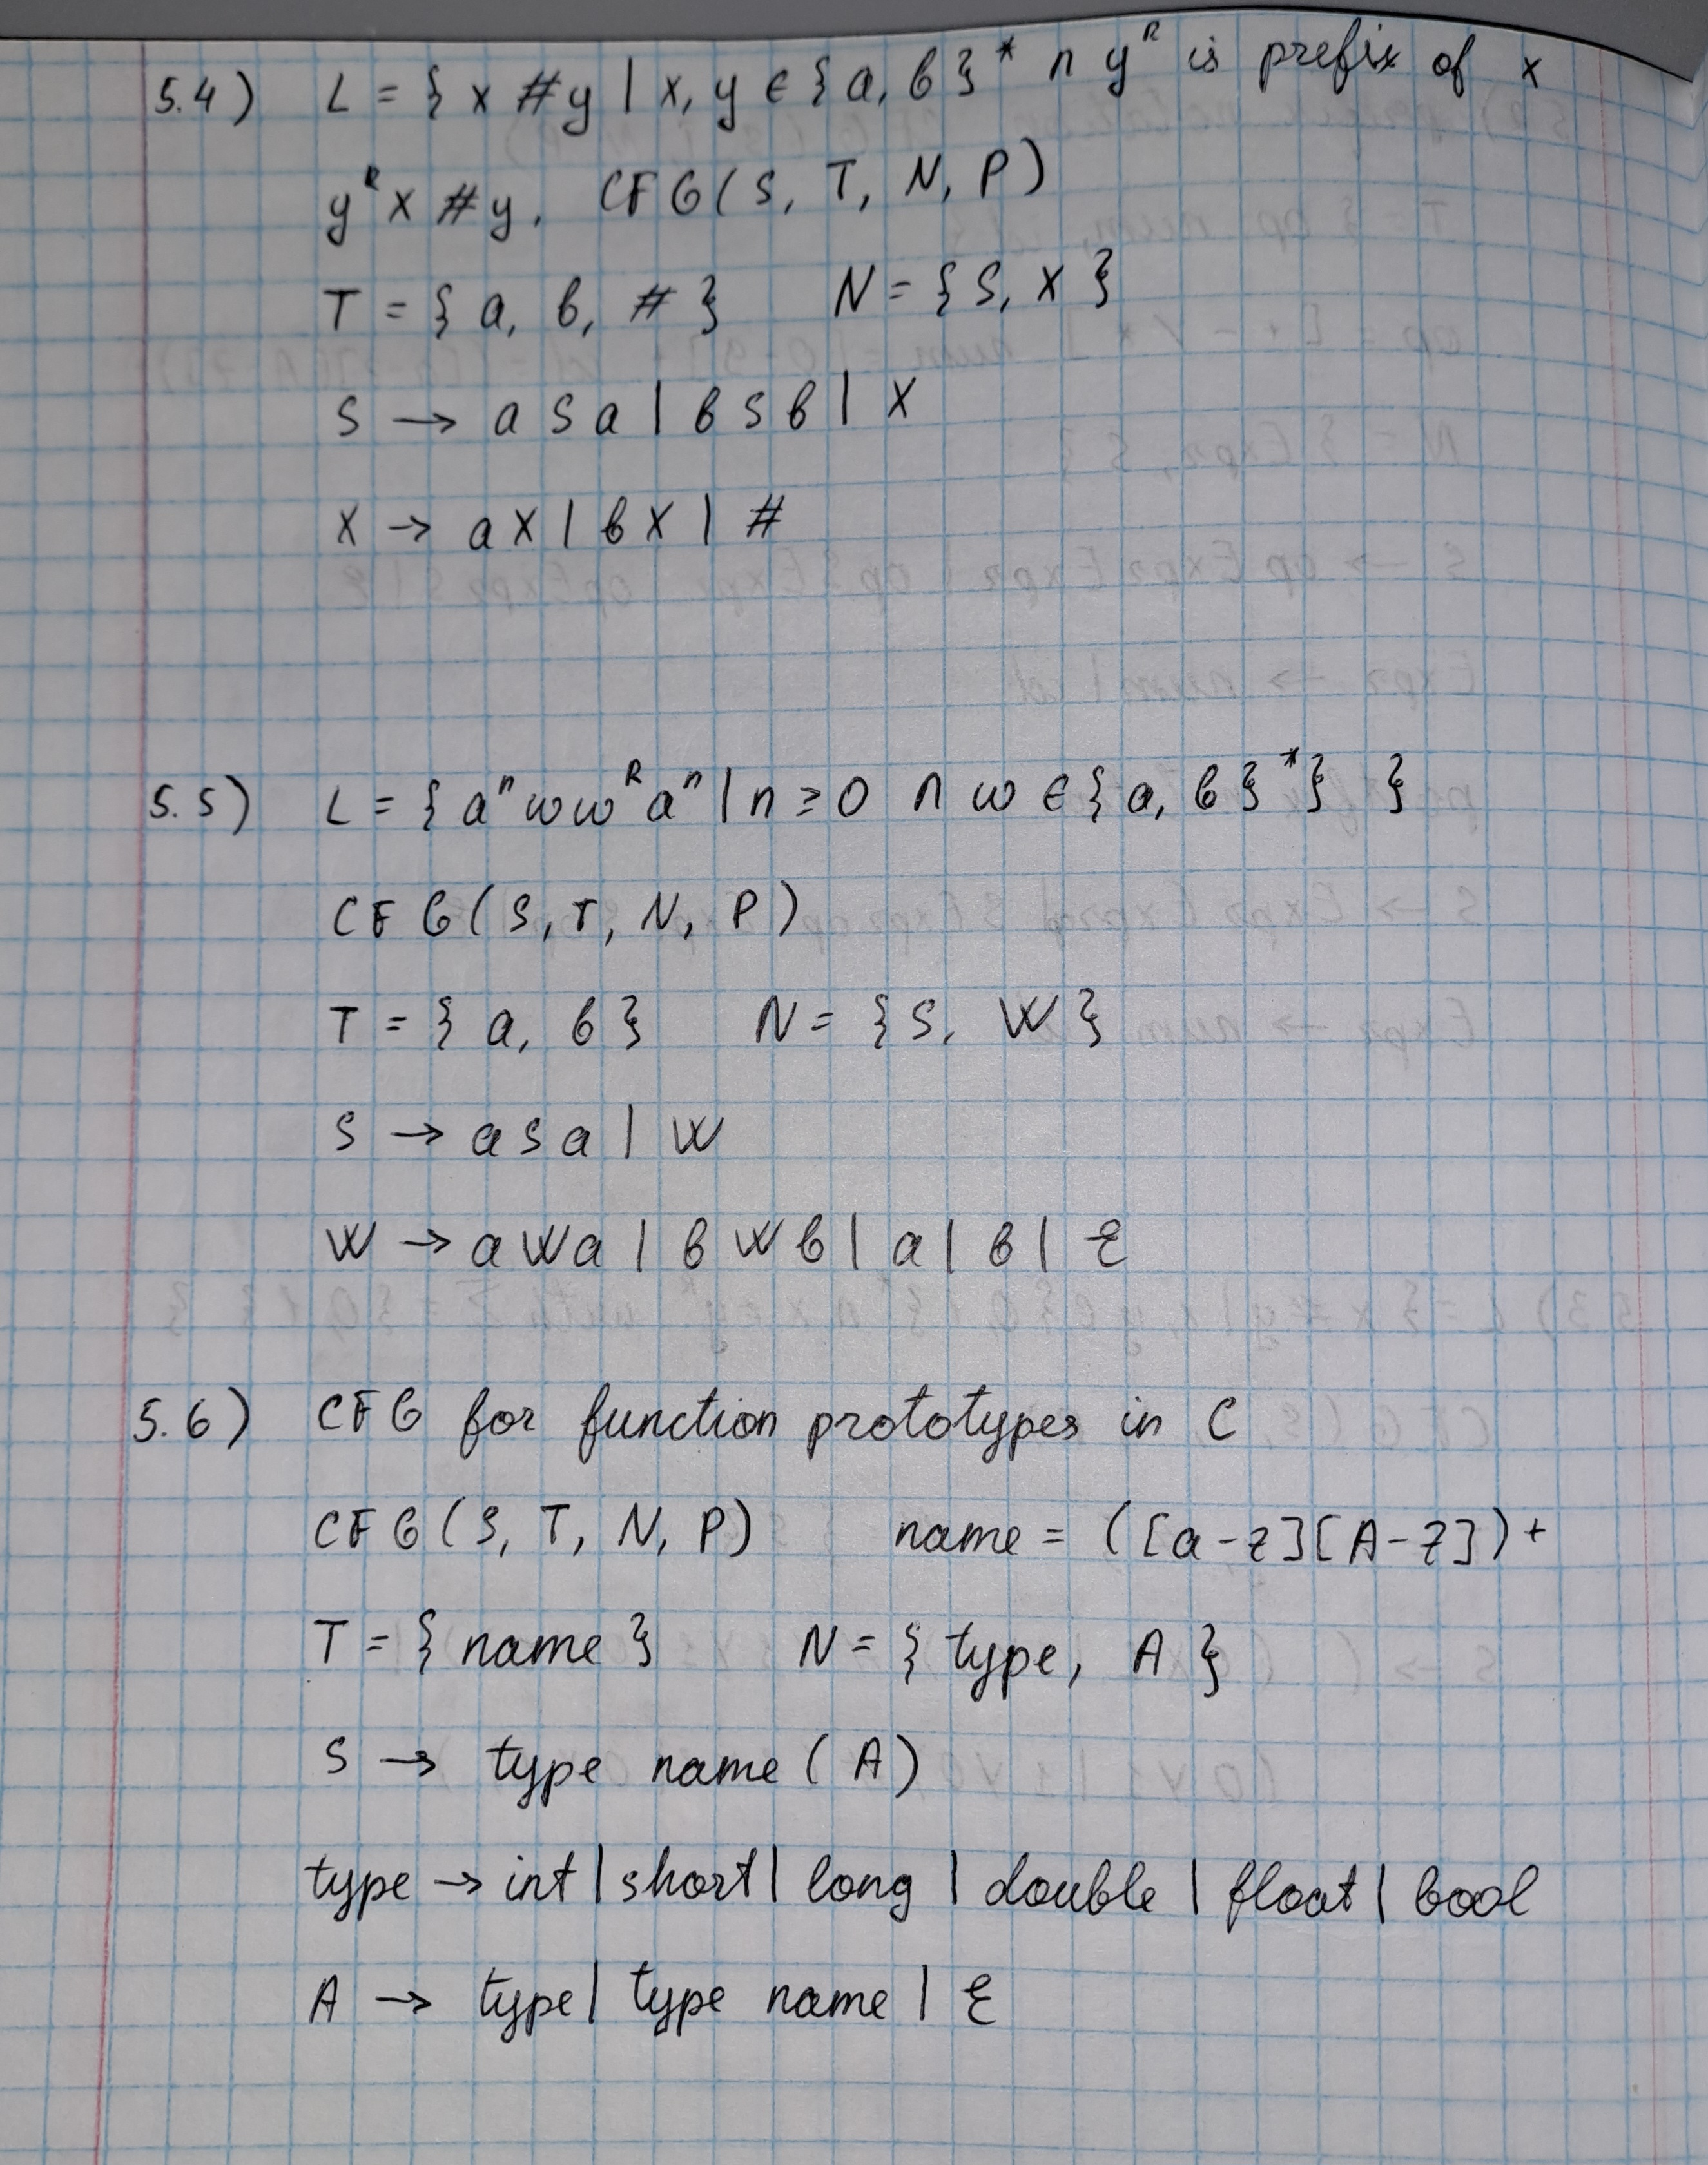 5.4) L = { x # y | x, y ∈ {a, b}* ∧ yᴿ is prefix of x
yᴿ x # y. CFG(S, T, N, P)
T = { a, b, # } N = { S, X }
S → a S a | b S b | X
X → a X | b X | #
5.5) L = { aⁿ w wᴿ aⁿ | n ≥ 0 ∧ w ∈ {a, b}*} }
CFG(S, T, N, P)
T = { a, b } N = { S, W }
S → a S a | W
W → a W a | b W b | a | b | ε
5.6) CFG for function prototypes in C
CFG(S, T, N, P) name = ([a-z][A-Z])+
T = { name } N = { type, A }
S → type name ( A )
type → int | short | long | double | float | bool
A → type | type name | ε